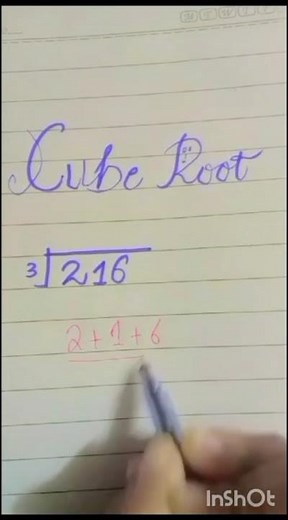 Cube Root
3√216
2+1+6
InShOt